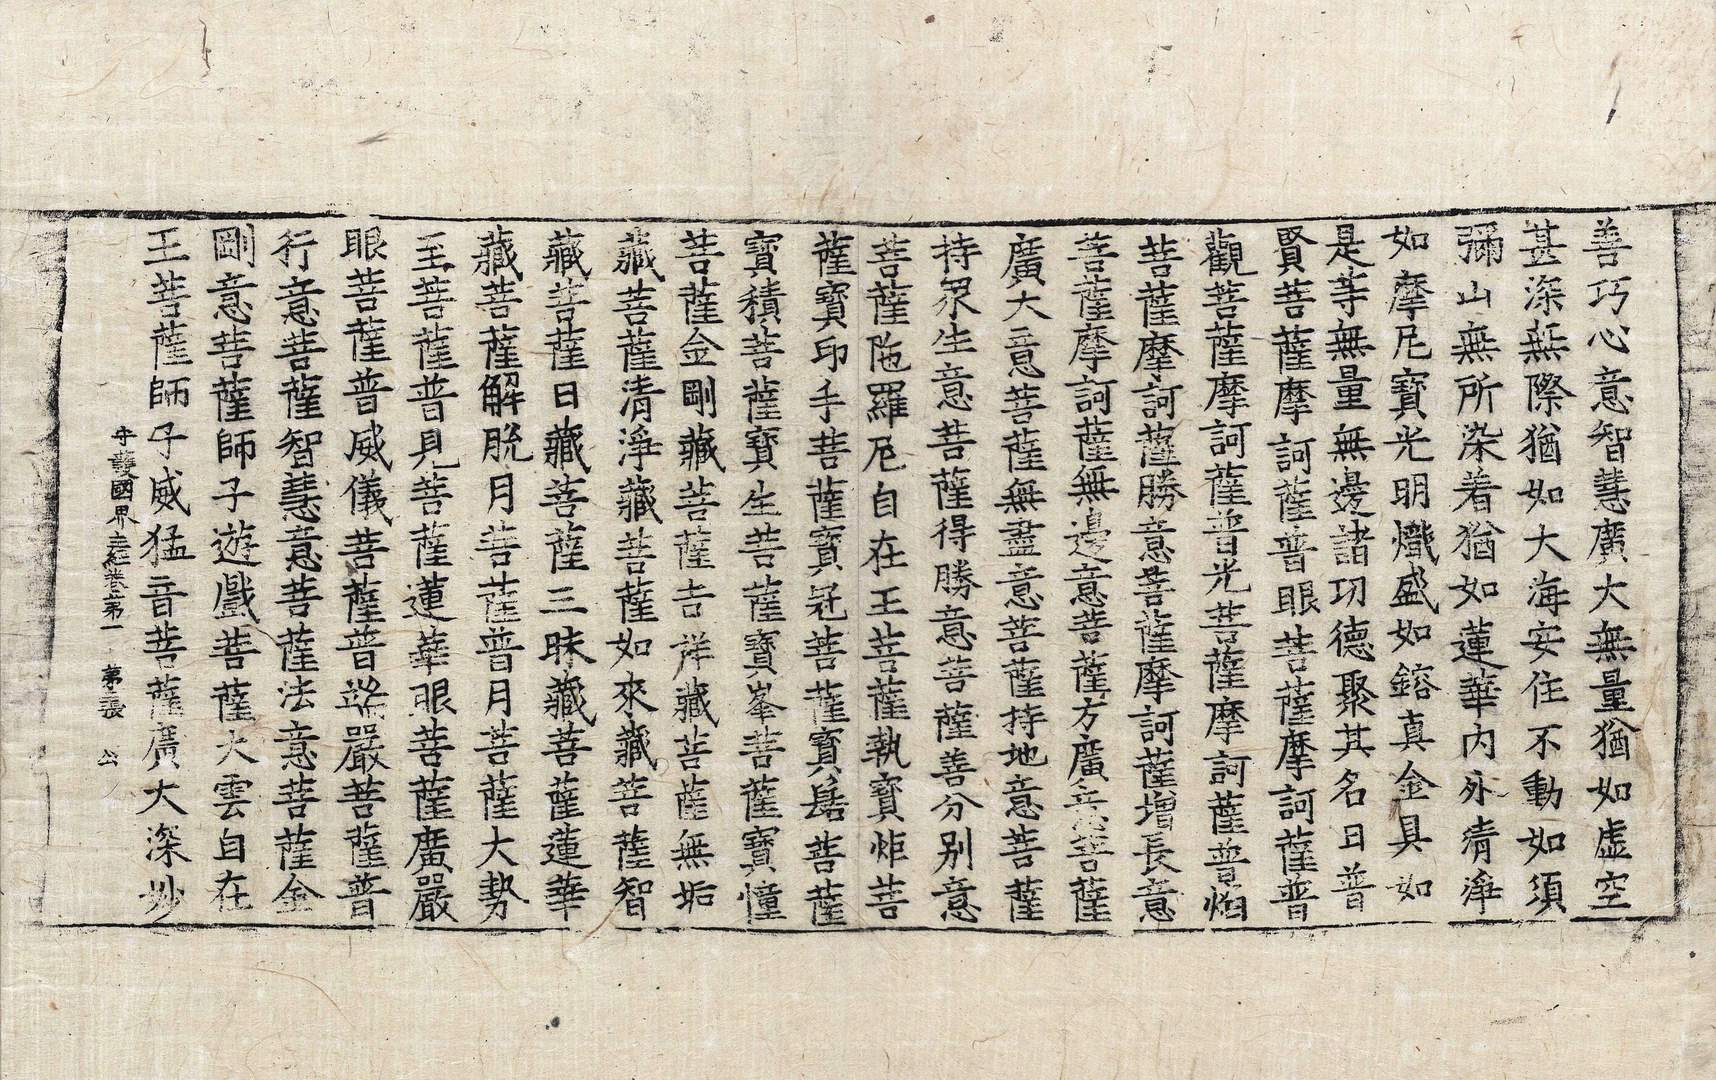 善巧心意智慧廣大無量猶如虛空
甚深無際猶如大海安住不動如須
彌山無所染着猶如蓮華內外清淨
如摩尼寶光明熾盛如鎔真金具如
是等無量無邊諸功德聚其名曰普
賢菩薩摩訶薩普眼菩薩摩訶薩普
觀菩薩摩訶薩普光菩薩摩訶薩普焰
菩薩摩訶薩勝意菩薩摩訶薩增長意
菩薩摩訶薩無邊意菩薩方廣意菩薩
廣大意菩薩無盡意菩薩持地意菩薩
持眾生意菩薩得勝意菩薩善分別意
菩薩陁羅尼自在王菩薩執寶炬菩
薩寶印手菩薩寶冠菩薩寶髻菩薩
寶積菩薩寶生菩薩寶峯菩薩寶憧
菩薩金剛藏菩薩吉祥藏菩薩無垢
藏菩薩清淨藏菩薩如來藏菩薩智
藏菩薩日藏菩薩三昧藏菩薩蓮華
藏菩薩解脫月菩薩普月菩薩大勢
至菩薩普見菩薩蓮華眼菩薩廣嚴
眼菩薩普威儀菩薩普端嚴菩薩普
行意菩薩智慧意菩薩法意菩薩金
剛意菩薩師子遊戲菩薩大雲自在
王菩薩師子威猛音菩薩廣大深妙
守護國界主經卷第一 第三張 公